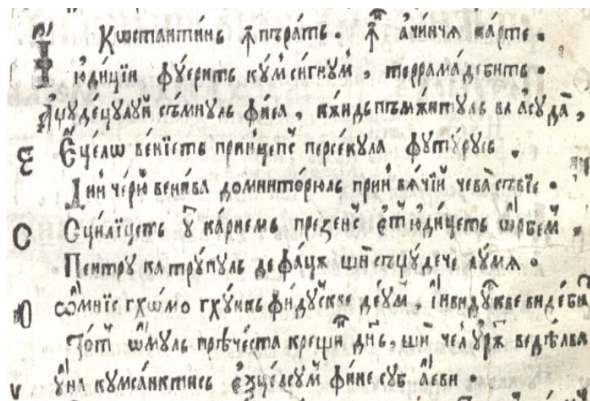 Кѡстантинь ꙟпъратъ. ꙟ а҃чинчѧ ка́рте.
І ю́дицїи фꙋ́еритъ кꙋмси́гнꙋм, террамаде́битъ.
Ꙟчꙋде́цꙋлꙋй съ́мнꙋль фі́еа, кѫндь пъмѫ́нтꙋль ва асꙋда̀,
Є Єце́лѡ ве́нїеть при́нцепс персе́кꙋла фꙋтꙋ́рꙋсь.
Дин че́рю ве́нива домнито́рюль прин вѧ́чїй чева съ́вїе.
С Сци́лїцеть ꙋ҆ ка́рнемь пре́зенс є҆т ю́дицеть ѡ҆́рбем.
Пе́нтрꙋ ка трꙋ́пꙋль де фа́цѫ ши съцꙋ́дече лꙋ́мѧ.
О ѡ҆́мнїс гхо́мо гхꙋ́нкь фидꙋ́скве де́ꙋм, и҆нвидꙋ́скве виде́би
То́т ѡ҆́мꙋль прѣче́ста крещи́н ши чел ꙋрѫт
ꙋ́на кꙋмса́нктись фи́не сꙋб а҆́еви.